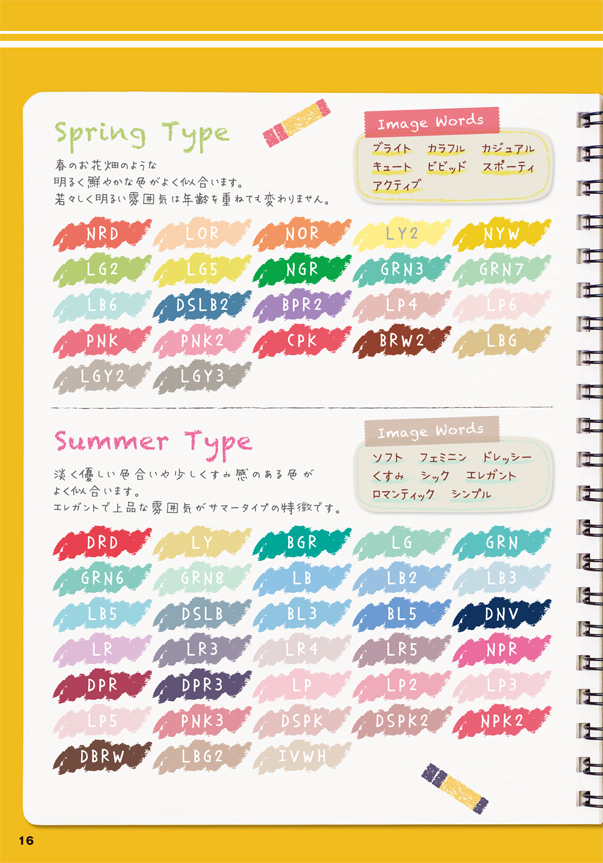 Spring Type
春のお花畑のような
明るく鮮やかな色がよく似合います。
若々しく明るい雰囲気は年齢を重ねても変わりません。
Image Words
ブライト カラフル カジュアル
キュート ビビッド スポーティ
アクティブ
NRD LOR NOR LY2 NYW
LG2 LG5 NGR GRN3 GRN7
LB6 DSLB2 BPR2 LP4 LP6
PNK PNK2 CPK BRW2 LBG
LGY2 LGY3
Summer Type
淡く優しい色合いや少しくすみ感のある色が
よく似合います。
エレガントで上品な雰囲気がサマータイプの特徴です。
Image Words
ソフト フェミニン ドレッシー
くすみ シック エレガント
ロマンティック シンプル
DRD LY BGR LG GRN
GRN6 GRN8 LB LB2 LB3
LB5 DSLB BL3 BL5 DNV
LR LR3 LR4 LR5 NPR
DPR DPR3 LP LP2 LP3
LP5 PNK3 DSPK DSPK2 NPK2
DBRW LBG2 IVWH
16